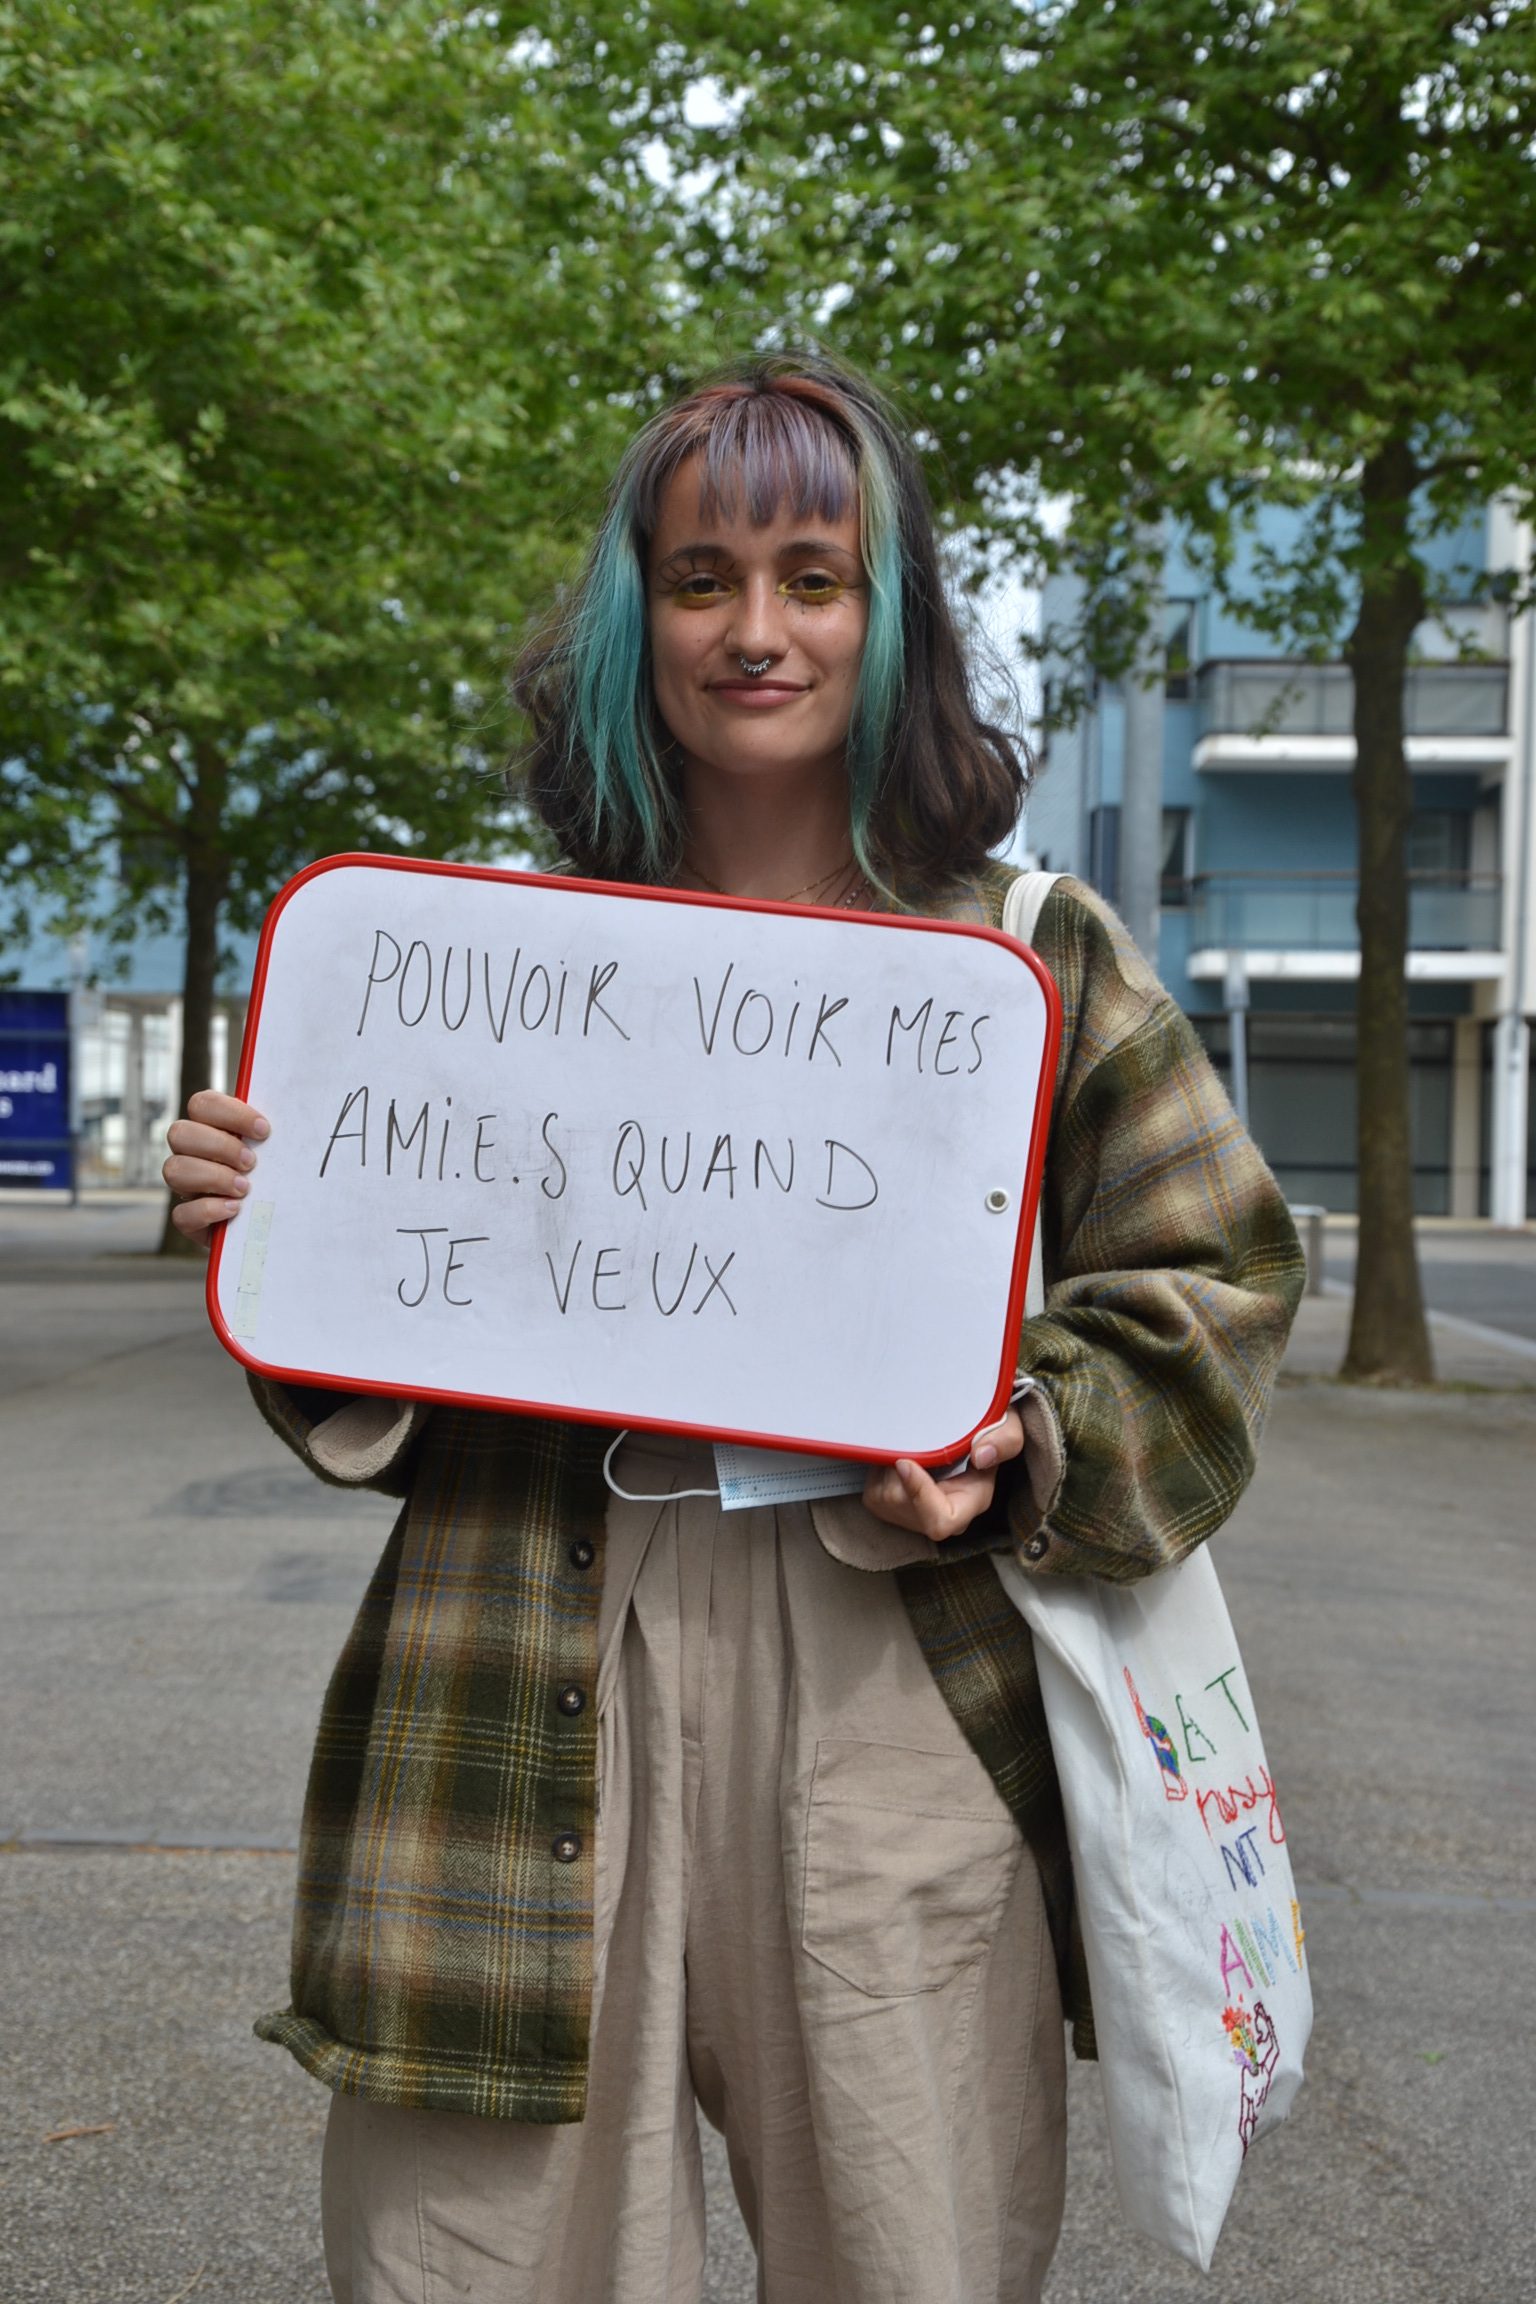 POUVOIR VOIR MES
AMI.E.S QUAND
JE VEUX
EAT
NT